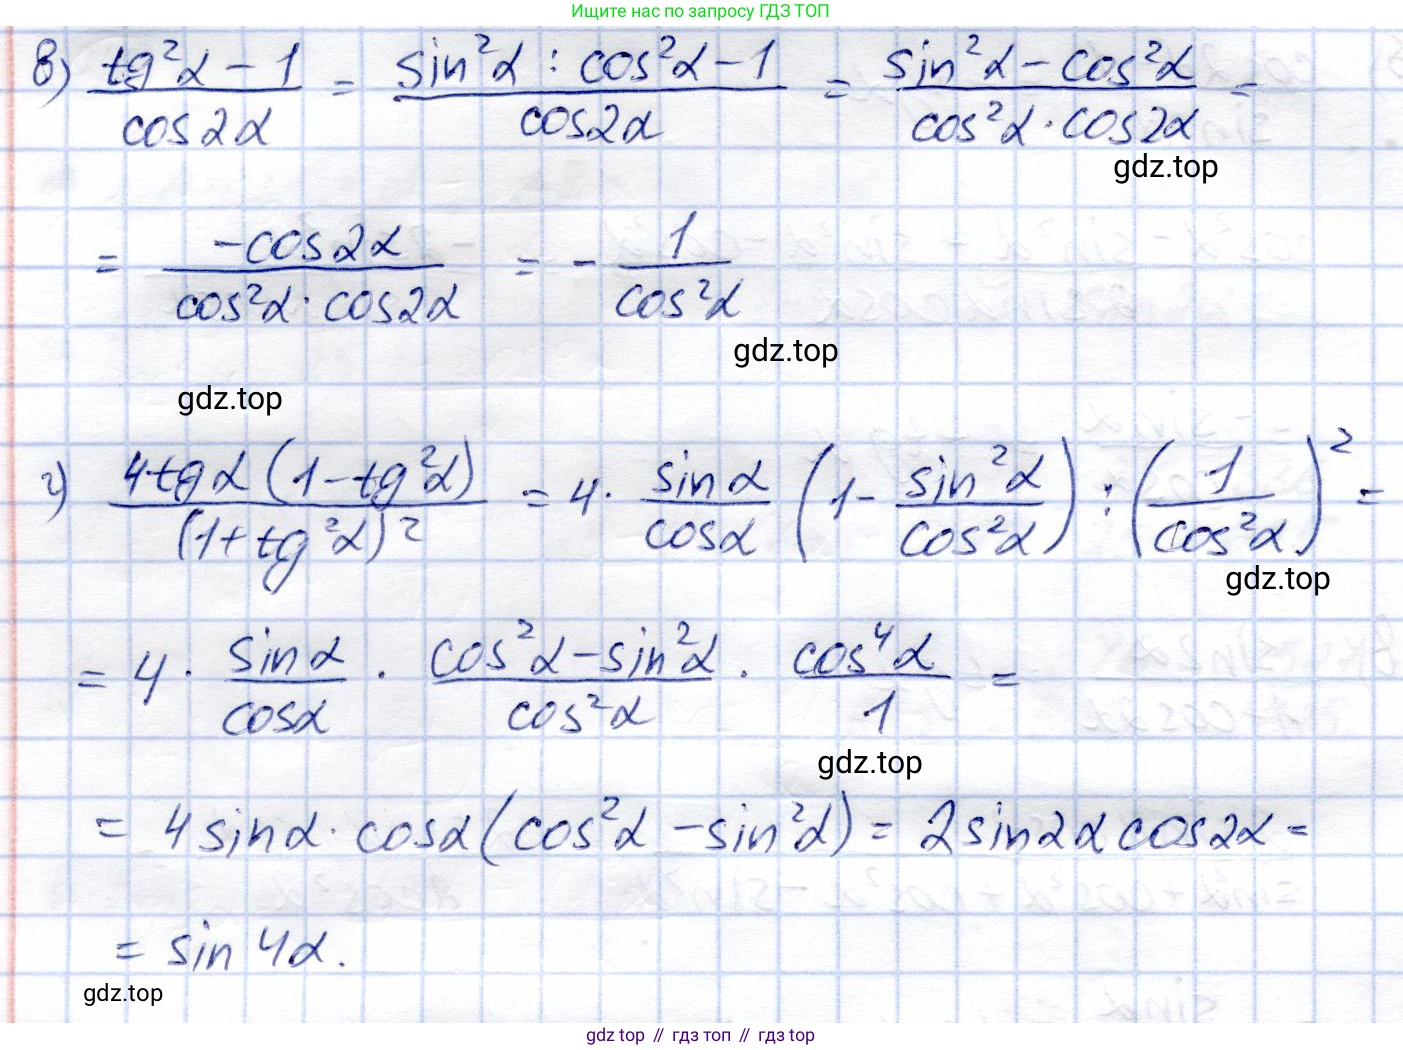 Ищите нас по запросу ГДЗ ТОП
в) (tg²α − 1)/(cos2α) = (sin²α : cos²α − 1)/(cos2α) = (sin²α − cos²α)/(cos²α · cos2α) =
gdz.top
= (−cos2α)/(cos²α · cos2α) = − 1/(cos²α)
gdz.top
gdz.top
г) (4tgα(1−tg²α))/((1+tg²α)²) = 4 · (sinα)/(cosα) (1 − (sin²α)/(cos²α)) : (1/(cos²α))² =
gdz.top
= 4 · (sinα)/(cosα) · (cos²α − sin²α)/(cos²α) · (cos⁴α)/1 =
gdz.top
= 4sinα · cosα(cos²α − sin²α) = 2sin2α cos2α =
= sin4α.
gdz.top
gdz top // гдз топ // gdz top